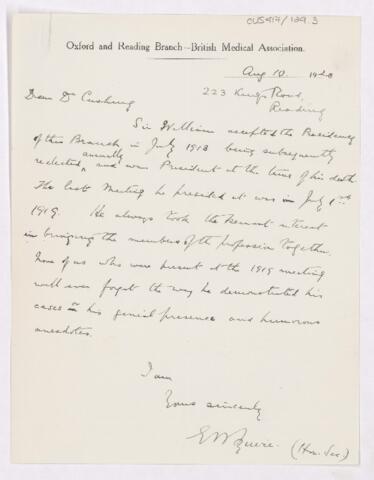 CUS417/129.3
Oxford and Reading Branch—British Medical Association.
Aug 10 1920
223 Kings Road,
Reading
Dear Dr Cushing
Sir William accepted the Presidency
of this Branch in July 1918 being subsequently
reelected annually and was President at the time of his death
The last Meeting he presided at was in July 1st
1919. He always took the keenest interest
in bringing the members of the profession together.
None of us who were present at the 1919 meeting
will ever forget the way he demonstrated his
cases or his genial presence and humorous
anecdotes.
I am
Yours sincerely
(Hon. Sec.)